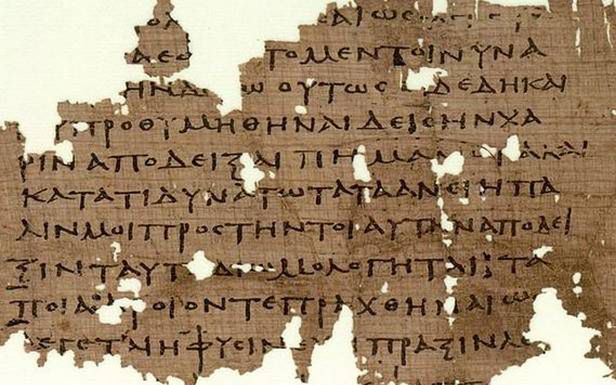 ΟΛ ΑΙ ΩΣ
ΛΕΟ ΤΟΜΕΝΤΟΙΝΥΝΑ
ΗΝΔ Ω ΟΥΤΩΣ ΔΕΔΗΚΑΙ
ΠΡΟΘΥΜΗΘΗΝΑΙΔΕΙΣΗΝΧΑ
ΡΙΝΑΠΟΔΕΙΞΑΙ ΠΗΜΑΛ ΑΚΑΙ
ΚΑΤΑΤΙΔΥΝΑΤΩΤΑΤΑΑΝΕΙΗΠΑ
ΛΙΝΜΟΙΠΡΟΣΤΗΝΤΟΙΑΥΤΗΝΑΠΟΔΕΙ
ΞΙΝΤΑΥΤ ΔΙΟΜΟΛΟΓΗΤΑΙ ΤΑ
ΠΟΙΑ Α ΟΙΟΝΤΕΠΡΑΧΘΗΝΑΙ Ω
ΛΕΓΕΤΑΙΗΦΥΣΙΝ Ι ΠΡΑΞΙΝΛΕ